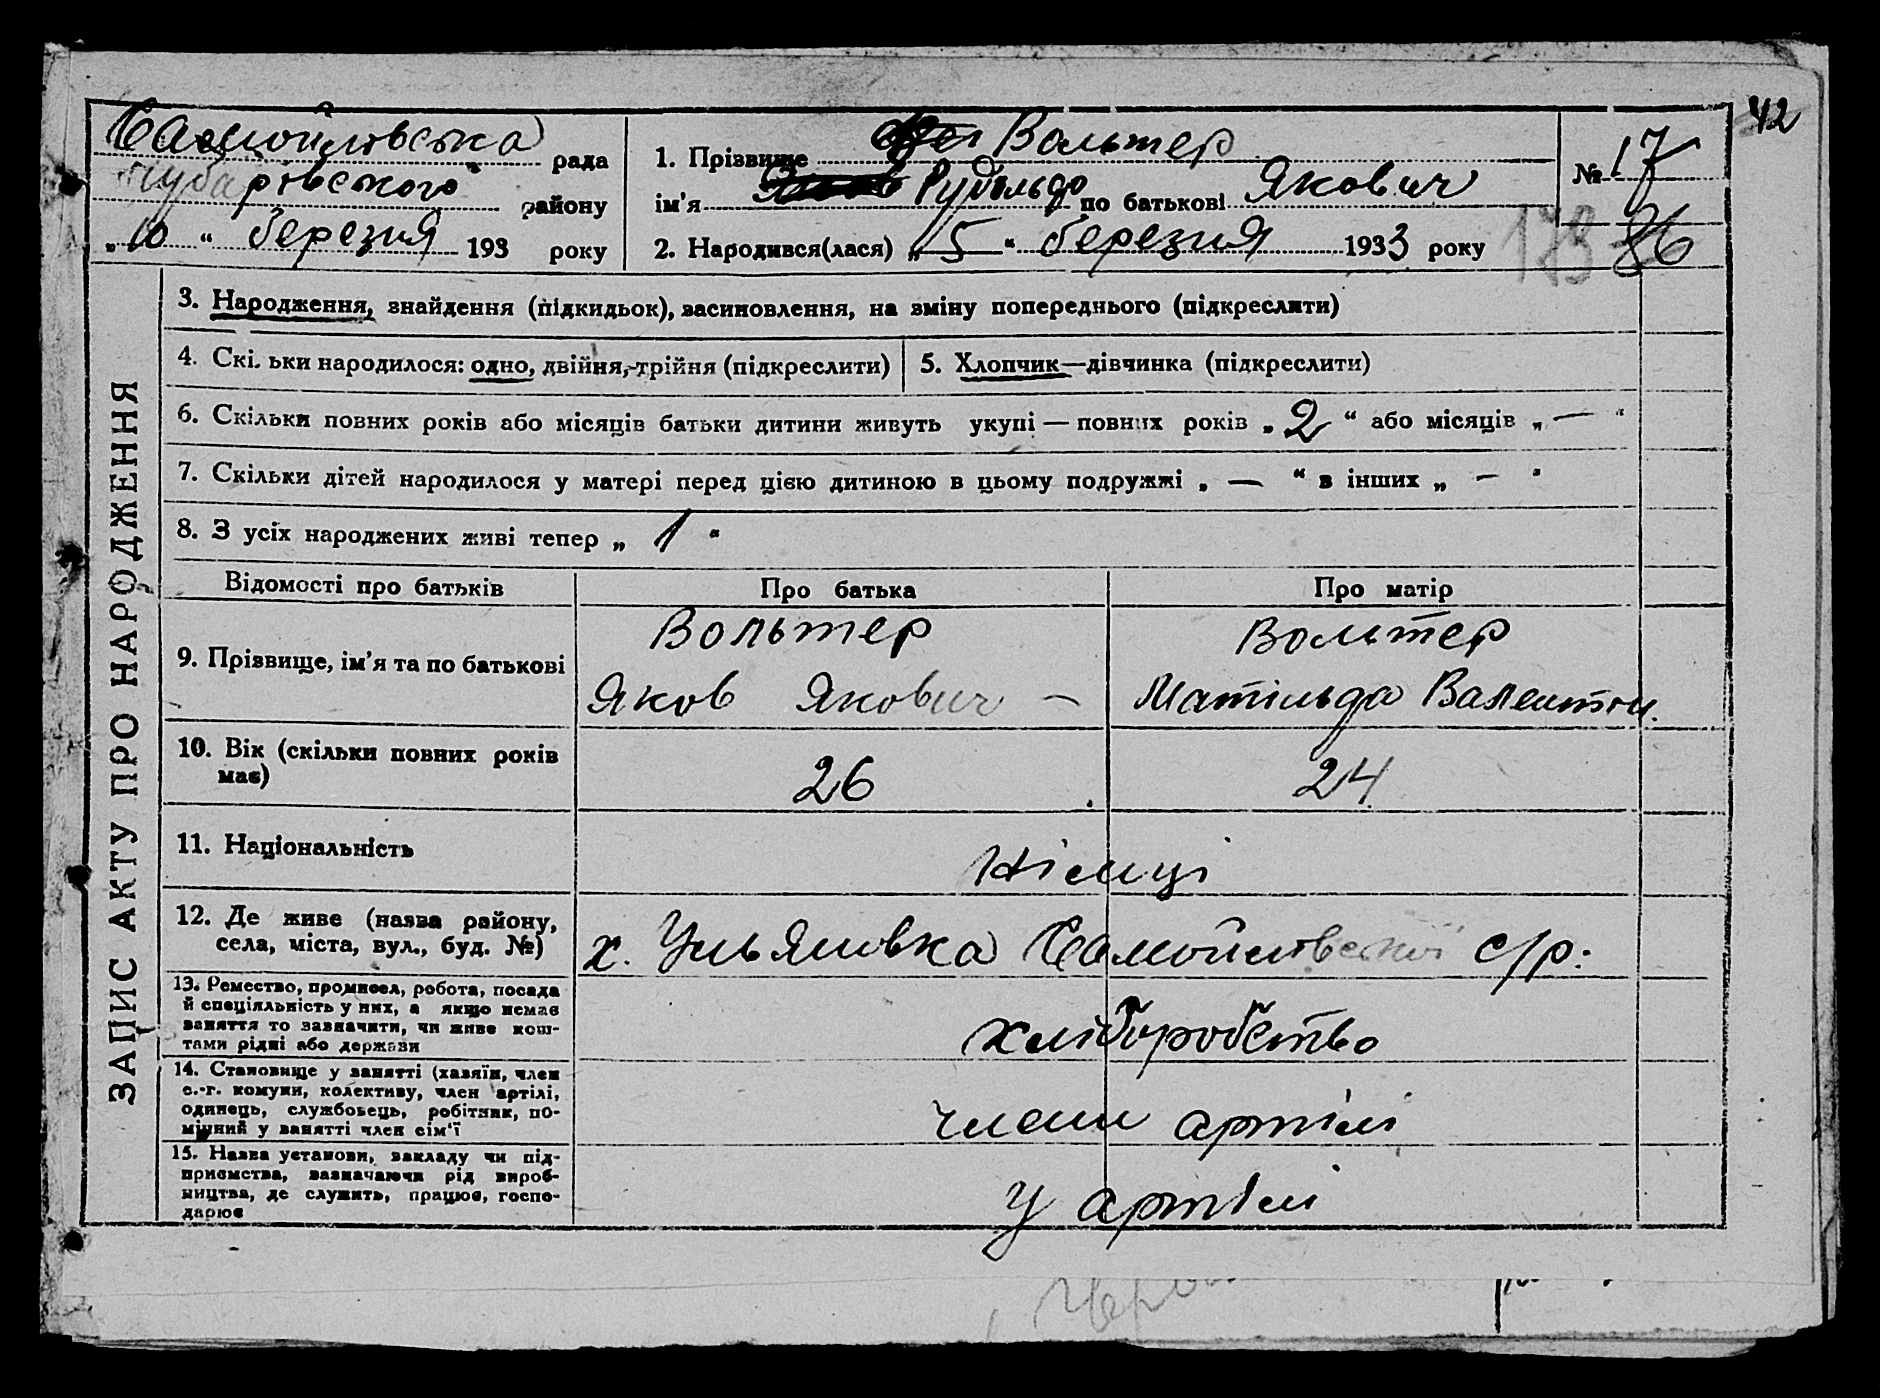 42
Самойлівська рада
Губарівського району
„10“ березня 193 року
1. Прізвище Вольтер
ім'я Рудольф по батькові Якович
2. Народився(лася) „5“ березня 1933 року
№ 17
173 86
ЗАПИС АКТУ ПРО НАРОДЖЕННЯ
3. Народження, знайдення (підкидьок), засиновлення, на зміну попереднього (підкреслити)
4. Скі. ьки народилося: одно, двійня, трійня (підкреслити)
5. Хлопчик—дівчинка (підкреслити)
6. Скільки повних років або місяців батьки дитини живуть укупі — повних років „2“ або місяців „—“
7. Скільки дітей народилося у матері перед цією дитиною в цьому подружжі „—“ в інших „—“
8. З усіх народжених живі тепер „1“
Відомості про батьків Про батька Про матір
Вольтер Вольтер
9. Прізвище, ім'я та по батькові
Яков Якович — Матільда Валентин.
10. Вік (скільки повних років
має) 26 24
11. Національність
Німці
12. Де живе (назва району,
села, міста, вул., буд. №) х. Ульяновка Самойлівської с/р.
13. Ремество, промисел, робота, посада
й спеціяльність у них, а якщо немає
заняття то зазначити, чи живе кош-
тами рідні або держави
хліборобство
14. Становище у занятті (хазяїн, член
с.-г. комуни, колективу, член артілі,
одинець, службовець, робітник, по-
мічний у занятті член сім'ї
члени артілі
15. Назва установи, закладу чи під-
приємства, зазначаючи рід вироб-
ництва, де служить, працює, госпо-
дарює
у артілі